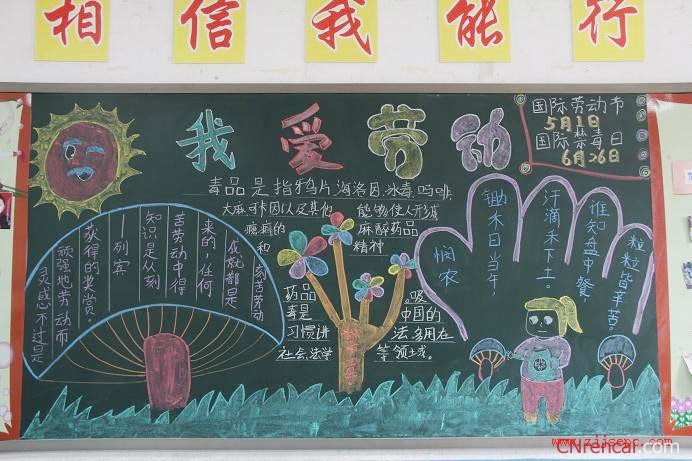 相信我能行
我爱劳动
国际劳动节
5月1日
国际禁毒日
6月26日
毒品是指鸦片海洛因冰毒吗啡
大麻可卡因以及其他
能够使人形成
瘾癖的
麻醉药品
和
精神
药品
毒是
习惯讲
社会、法学
吸
中国的
法多用在
等领土或。
灵感不过是
顽强地劳动而
获得的奖赏。
——列宾
知识是从刻
苦劳动中得
来的，任何
成就都是
刻苦劳动
悯农
锄木日当午，
汗滴禾下土。
谁知盘中餐
粒粒皆辛苦。
www.zjjsepc.com
CNrencai.com